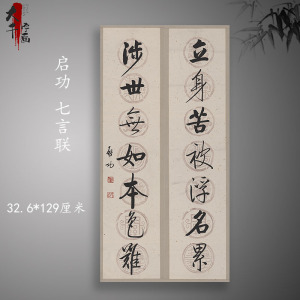 启功 七言联
32.6*129厘米
立身苦被浮名累
涉世無如本色難
啟功